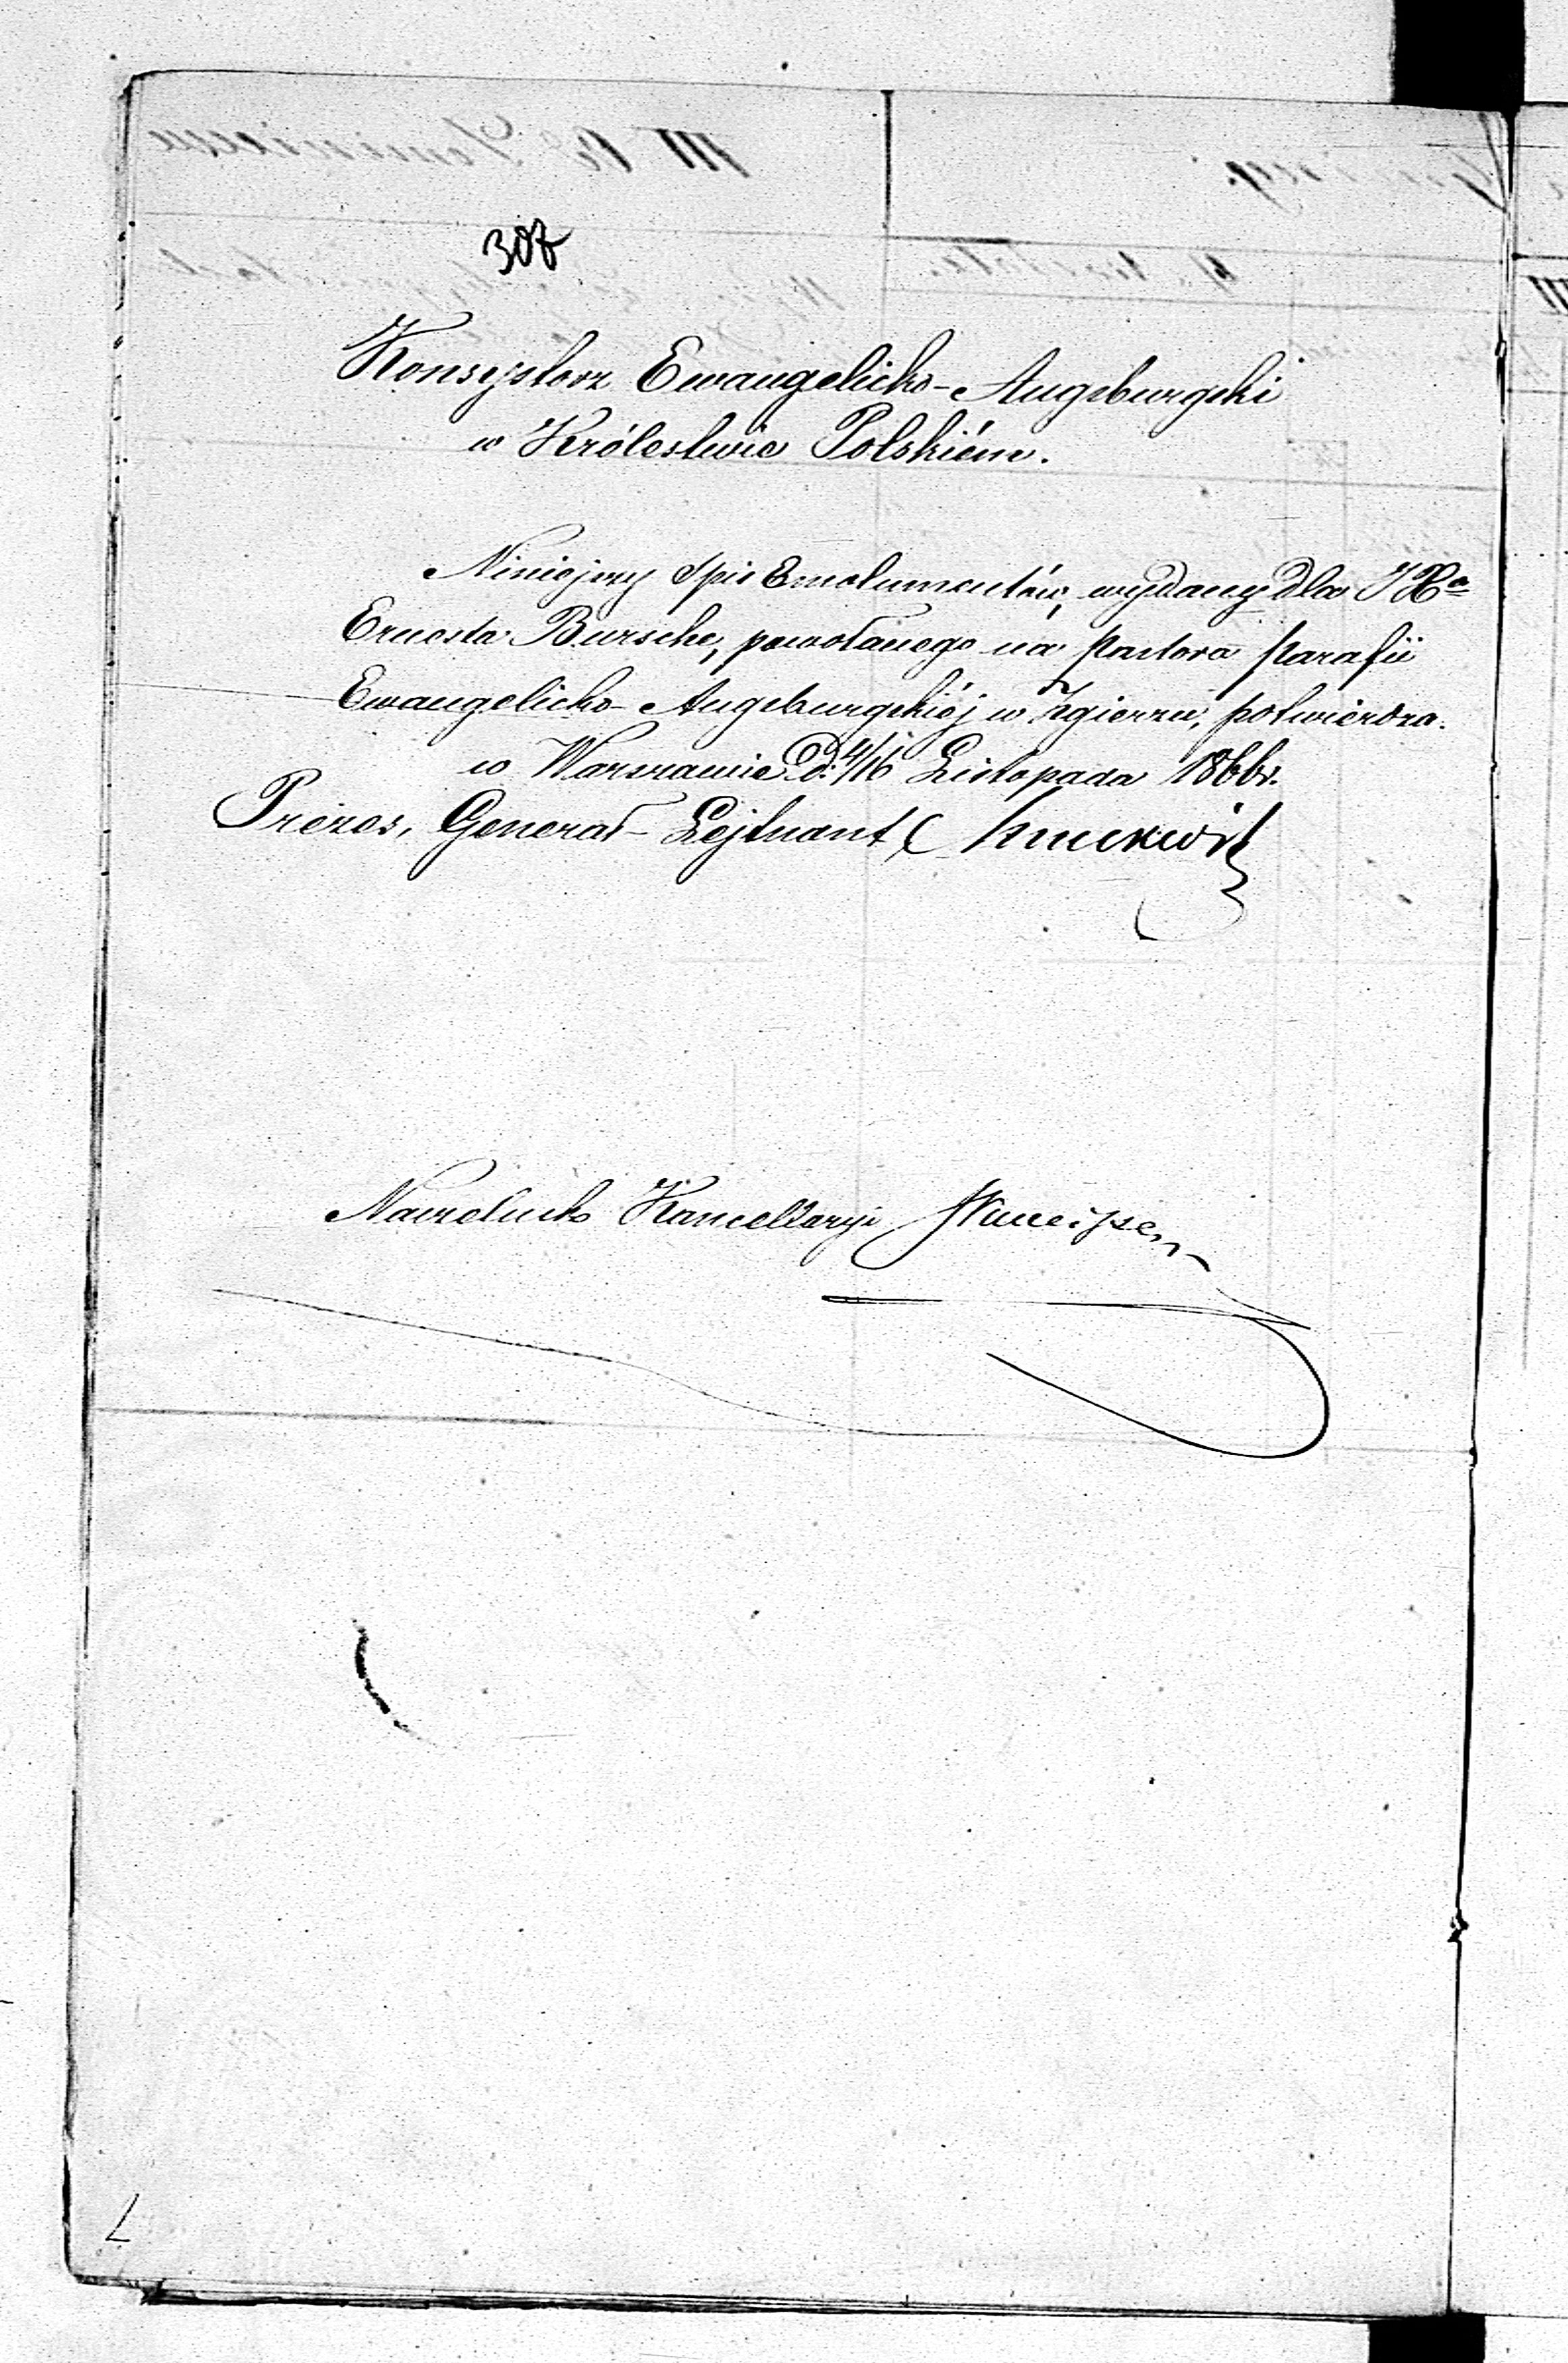 307
Konsystorz Ewangelicko-Augsburgski
w Królestwie Polskiém.
Niniejszy Spis Emolumentów, wydany dla JX<sup>a</sup>
Ernesta Bursche, powołanego na Pastora Parafii
Ewangelicko-Augsburgskiéj w Zgierzu, potwierdza.
w Warszawie d. 4/16 Listopada 1866 r.
Prezes, Generał-Lejtnant
Naczelnik Kancellaryi